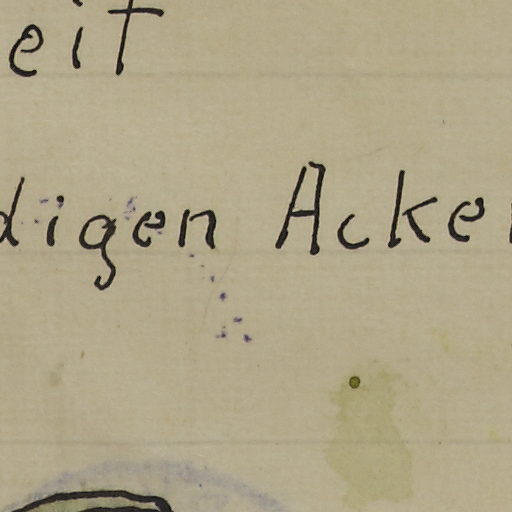 eit
digen Acker